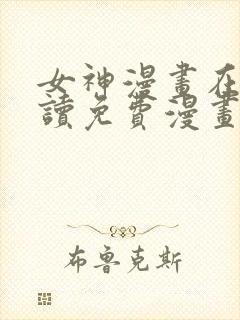 女神漫畫在
讀免費漫畫
布魯克斯